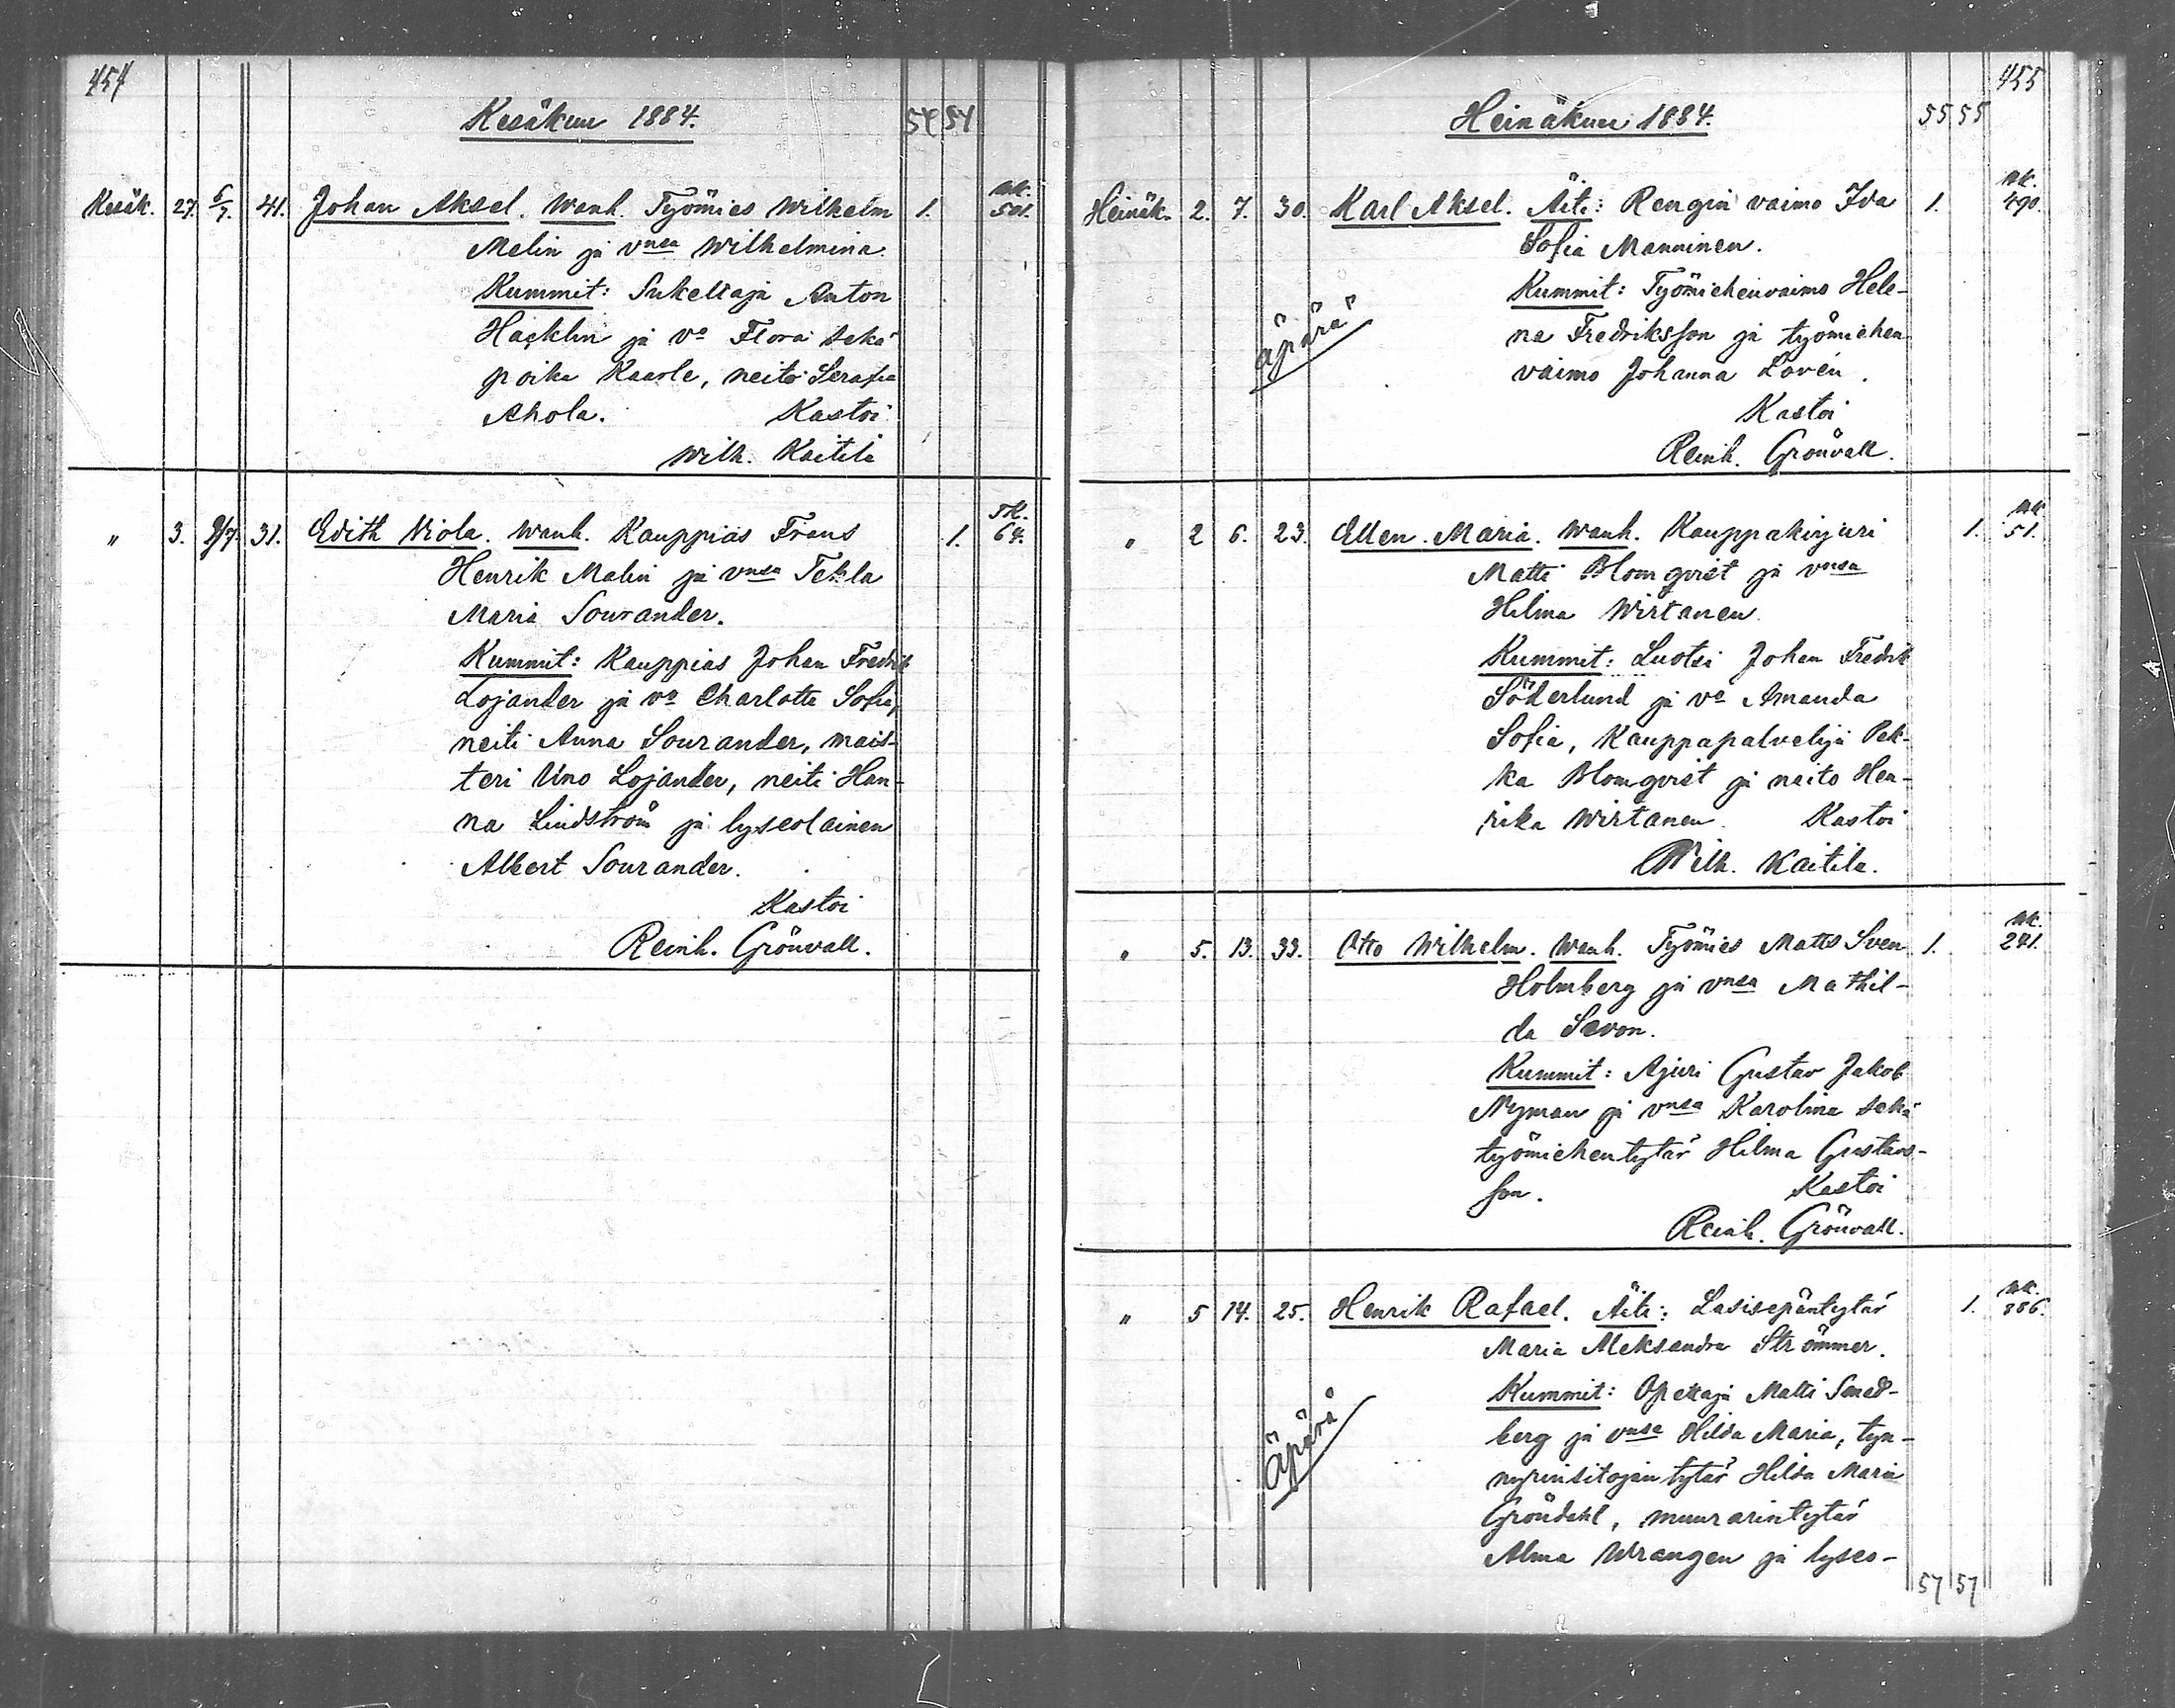 454
Kesäkuu 1884. 54 54
Kesäk. 27. 6/7. 41. Johan Aksel. Wanh. Työmies Wilhelm 1. WK. 501.
Melin ja vnsa Wilhelmina.
Kummit: Sukeltaja Anton
Hacklin ja vo Flora sekä
poika Kaarle, neito Serafia
Ahola. Kastoi
Wilh. Kaitila
" 3. 9/7. 31. Edith Viola. Wanh. Kauppias Frans 1. TK. 64.
Henrik Malin ja vnsa Tekla
Maria Sourander.
Kummit: Kauppias Johan Fredrik
Lojander ja vo Charlotta Sofia,
neiti Anna Sourander, mais-
teri Uno Lojander, neiti Han-
na Lindström ja lyseolainen
Albert Sourander.
Kastoi
Reinh. Grönvall.
455
Heinäkuu 1884. 55 55
Heinäk. 2. 7. 30. Karl Aksel. Äiti: Rengin vaimo Ida 1. WK. 490.
Sofia Manninen.
Kummit: Työmiehenvaimo Hele-
na Fredriksson ja työmiehen
vaimo Johanna Lovén.
äpärä
Kastoi
Reinh. Grönvall.
" 2 6. 23. Ellen Maria. Wanh. Kauppakirjuri 1. WK. 51.
Matti Blomqvist ja vnsa
Hilma Wirtanen.
Kummit: Luotsi Johan Fredrik
Söderlund ja vo Amanda
Sofia, Kauppapalvelija Pek-
ka Blomqvist ja neito Hen-
rika Wirtanen. Kastoi
Wilh. Kaitila.
" 5. 13. 33. Otto Wilhelm. Wanh. Työmies Matts Sven 1. WK. 241.
Holmberg ja vnsa Mathil-
da Sevon.
Kummit: Ajuri Gustav Jakob
Nyman ja vnsa Karolina sekä
työmiehentytär Hilma Gustavs-
son. Kastoi
Reinh. Grönvall.
" 5 14. 25. Henrik Rafael. Äiti: Lasisepäntytär 1. WK. 386.
Maria Aleksandra Strömmer.
Kummit: Opettaja Matti Smed-
berg ja vnsa Hilda Maria, tyn-
nyrinsitojan tytär Hilda Maria
Gröndahl, muurarintytär
Alma Wrangen ja lyseo-
äpärä
57 57